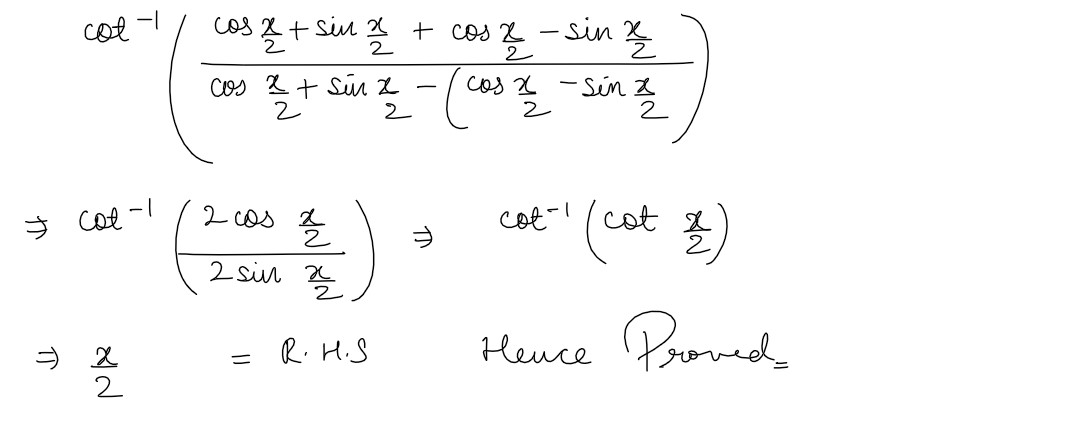 cot⁻¹ ( (cos x/2 + sin x/2 + cos x/2 − sin x/2) / (cos x/2 + sin x/2 − (cos x/2 − sin x/2) )
⇒ cot⁻¹ ( (2 cos x/2) / (2 sin x/2) ) ⇒ cot⁻¹ (cot x/2)
⇒ x/2 = R.H.S Hence Proved=